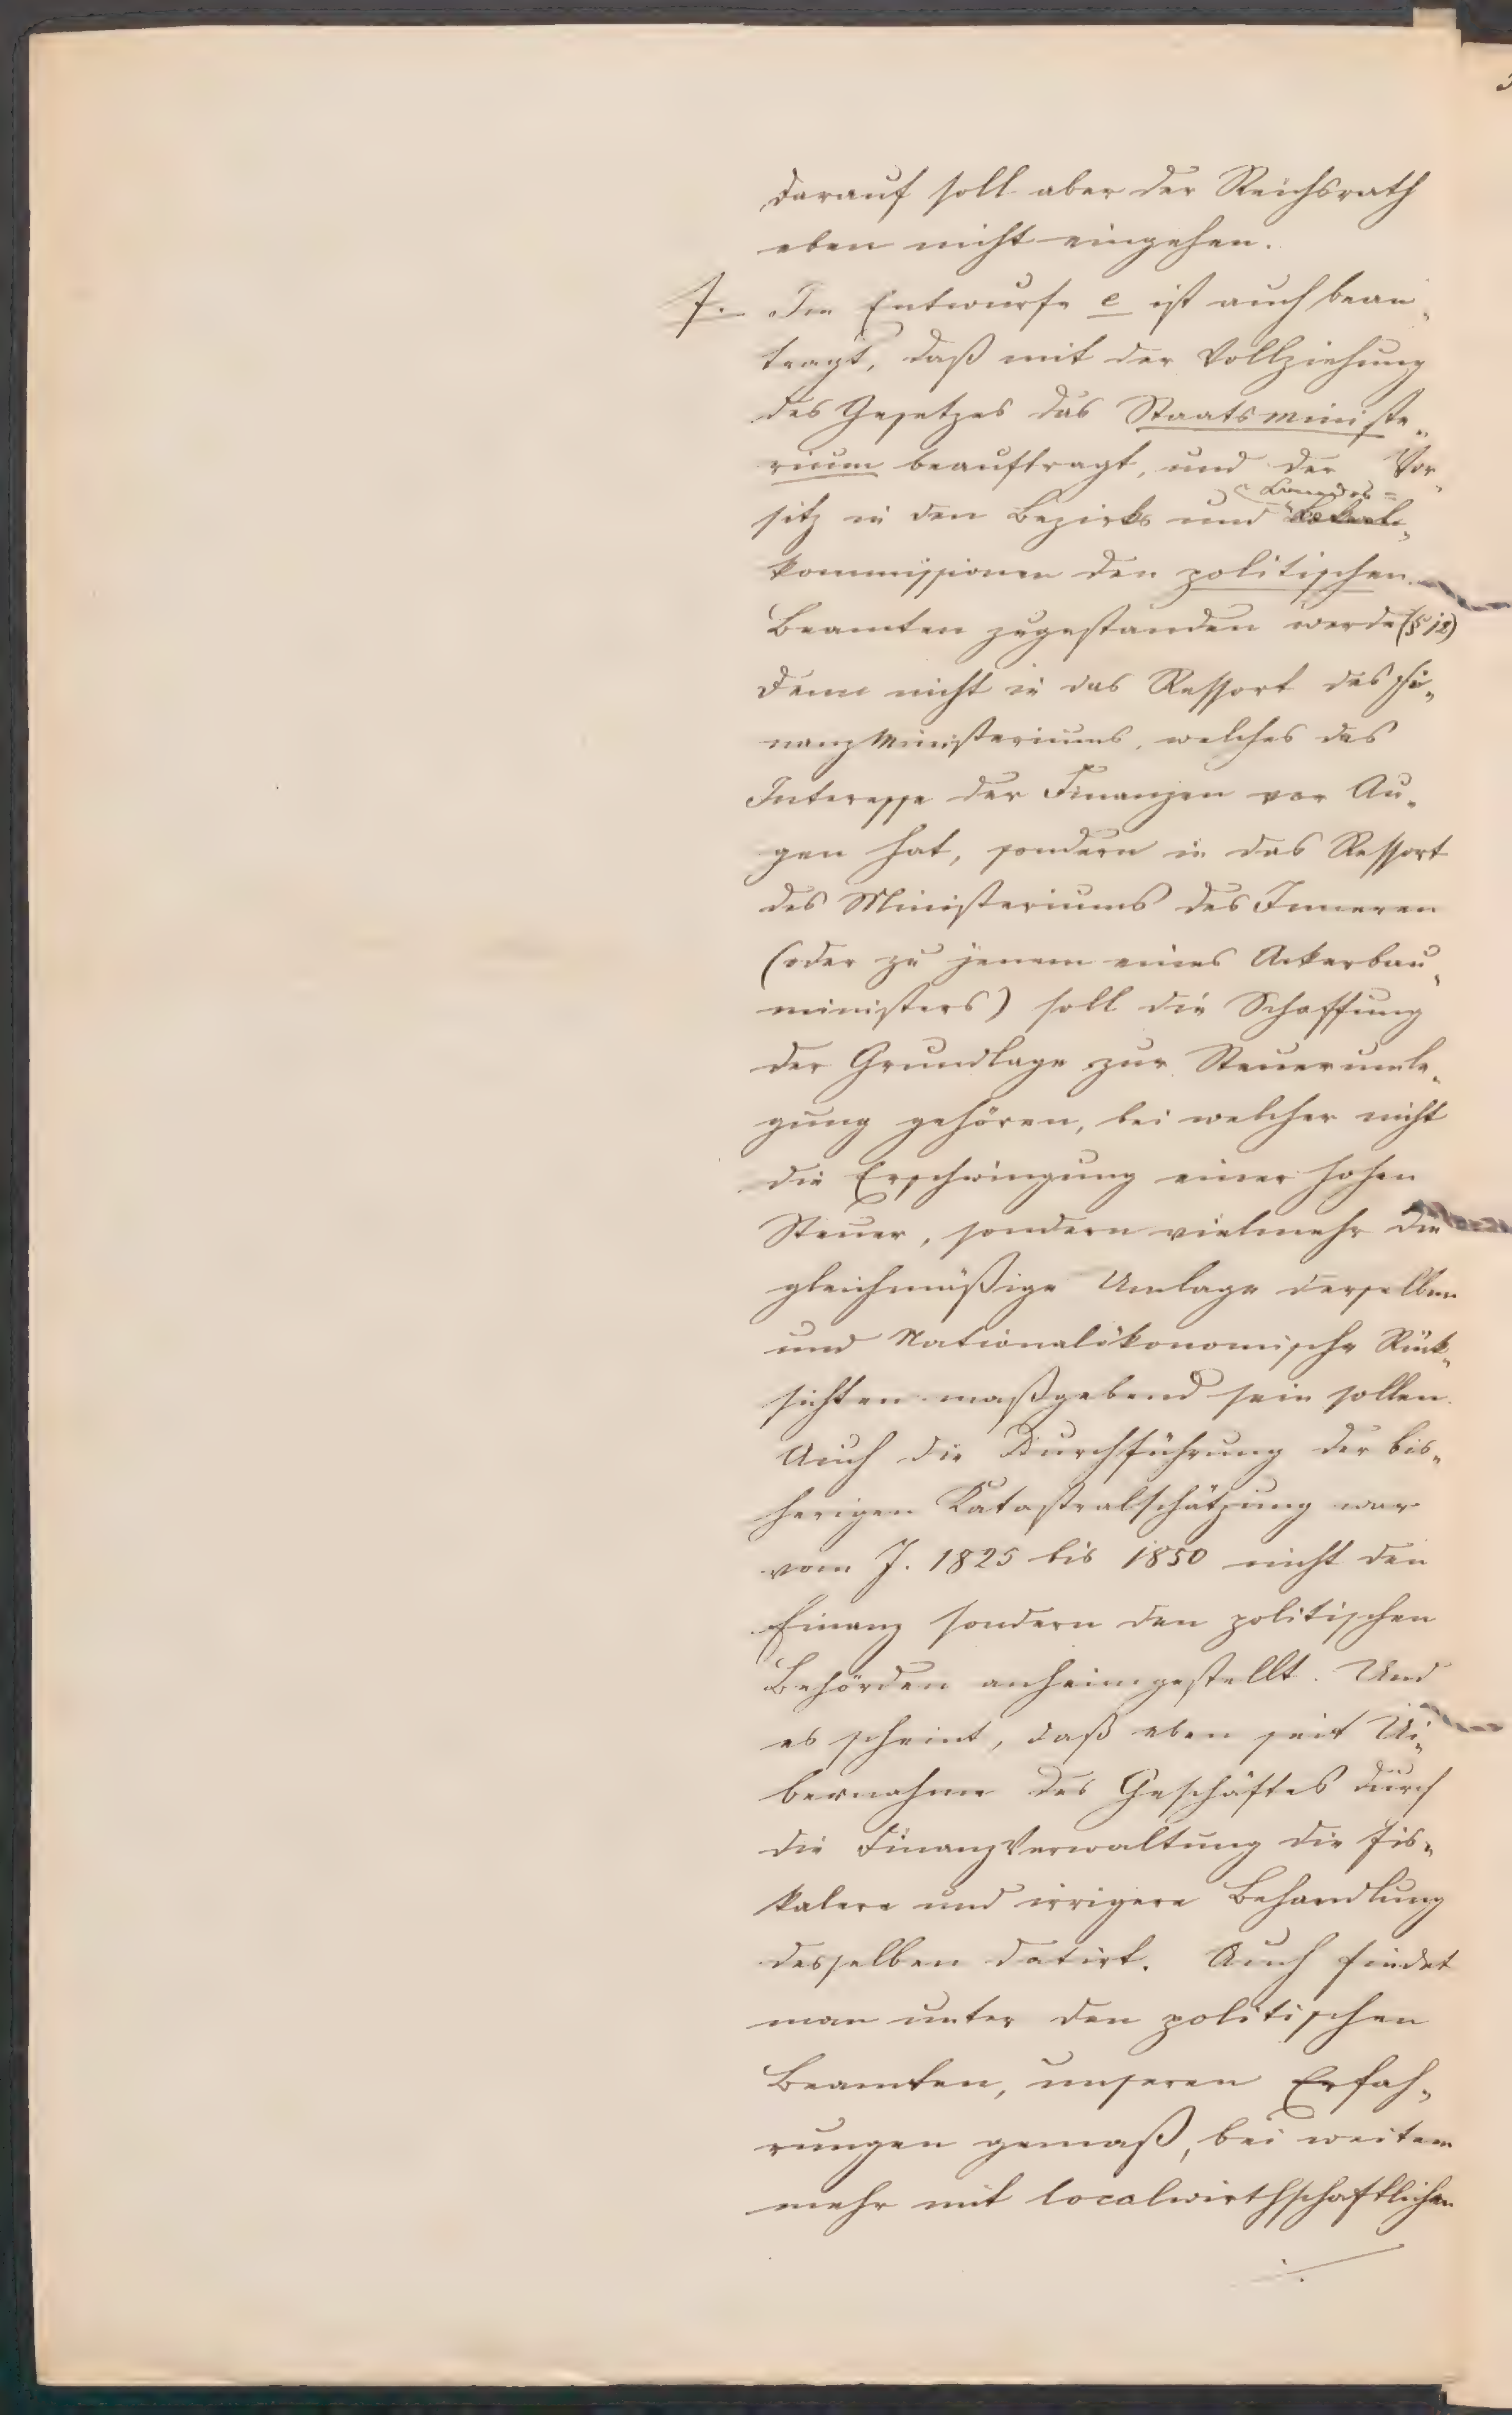 darauf soll aber der Reichsrath
eben nicht eingehen.
7. Im Entwurfe e ist auch bean„
tragt, daß mit der Vollziehung
des Gesetzes das Staatsministe„
rium beauftragt, und der Vor„
Landes=
sitz in den Bezirks und Lokal„
kommissionen den politischen
Beamten zugestanden werde (§ 12)
Denn nicht in das Ressort des Fi„
nanzministeriums, welches das
Interesse der Finanzen vor Au„
gen hat, sondern in das Ressort
des Ministeriums des Inneren
(oder zu jenem eines Ackerbau„
ministers) soll die Schaffung
der Grundlage zur Steuerumle„
gung gehören, bei welcher nicht
die Erschwingung einer hohen
Steuer, sondern vielmehr die
gleichmäßige Umlage derselben
und Nationalökonomische Rück„
sichten maßgebend sein sollen.
Auch die Durchführung der bis„
herigen Katastralschätzung war
vom J. 1825 bis 1850 nicht den
Finanz sondern den politischen
Behörden anheimgestellt. Und
es scheint, daß eben seit Ui„
bernahme des Geschäftes durch
die Finanzverwaltung die fis„
kalere und irrigere Behandlung
desselben datirt. Auch findet
man unter den politischen
Beamten, unseren Erfah„
rungen gemäß, bei weitem
mehr mit localwirthschaftlichen
./.